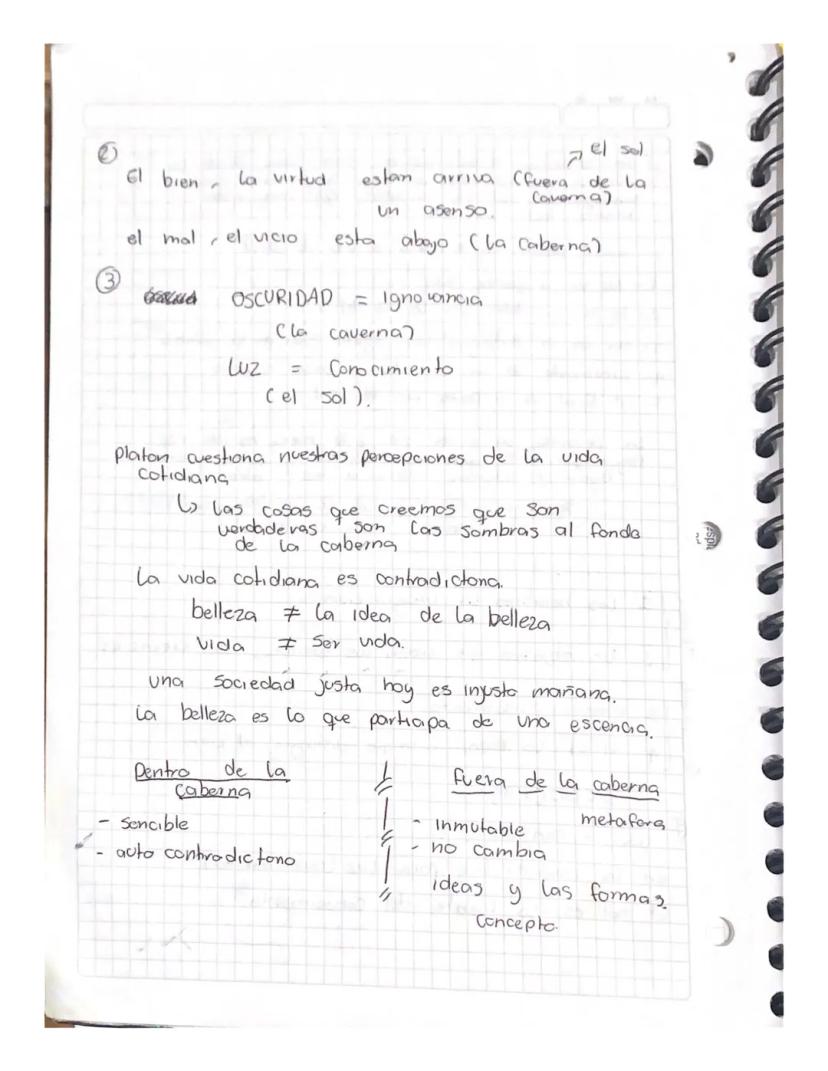 ②
↗ el sol
El bien, la virtud estan arriva (fuera de la
caverna)
un asenso.
el mal, el vicio esta abajo (la caberna)
③
OSCURIDAD = ignorancia
(la caverna)
LUZ = Conocimiento
(el sol).
platon cuestiona nuestras percepciones de la vida
cotidiana
↳ las cosas que creemos que son
verdaderas son las sombras al fondo
de la caberna
La vida cotidiana es contradictoria.
belleza ≠ la idea de la belleza
vida ≠ ser vida.
una sociedad justa hoy es injusta mañana.
la belleza es lo que participa de una escencia.
Dentro de la
caberna
- sencible
- auto contradictorio
fuera de la caberna
metafora
- inmutable
- no cambia
ideas y las formas.
concepto.